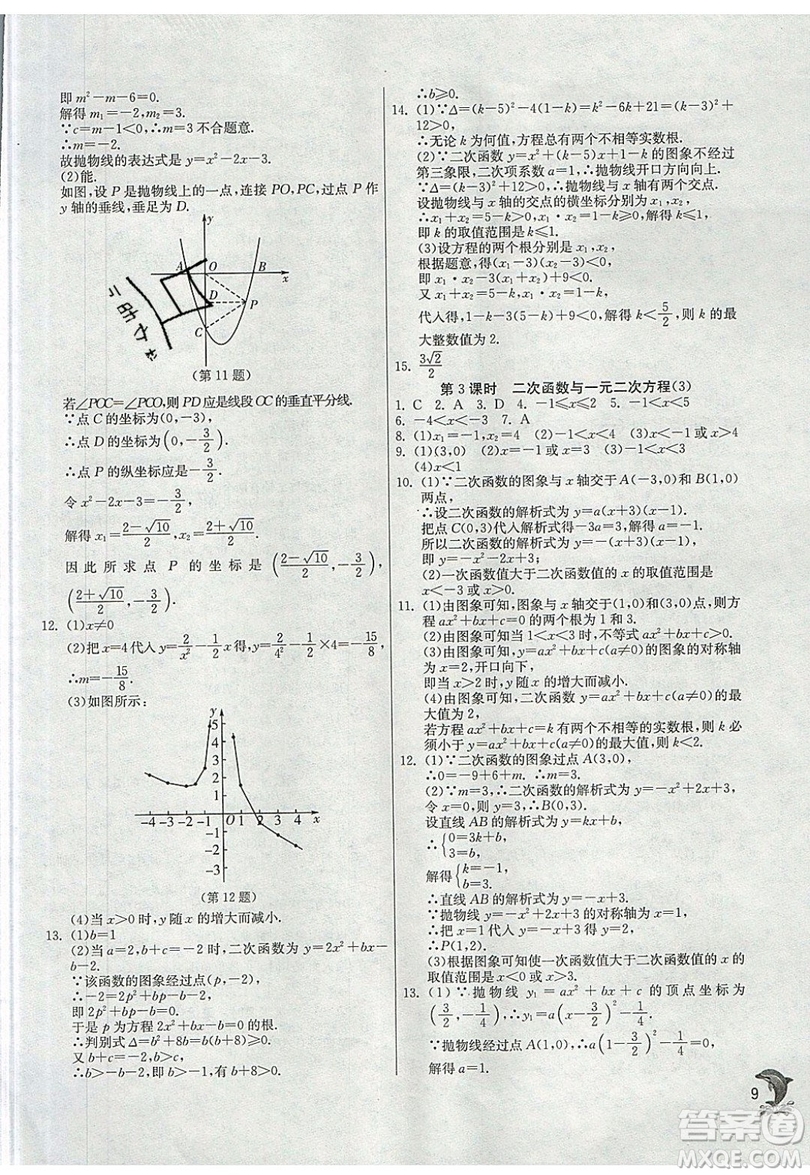 即 m²-m-6=0.
解得 m₁=-2, m₂=3.
∵c=m-1<0,∴m=3 不合题意.
∴m=-2.
故抛物线的表达式是 y=x²-2x-3.
(2)能.
如图,设 P 是抛物线上的一点,连接 PO,PC,过点 P 作
y 轴的垂线,垂足为 D.
y
A O B
x
D P
C
(第 11 题)
若∠POC=∠PCO,则 PD 应是线段 OC 的垂直平分线.
∵点 C 的坐标为(0,-3),
∴点 D 的坐标为(0,-3/2).
∴点 P 的纵坐标应是-3/2.
令 x²-2x-3=-3/2,
解得 x₁=(2-√10)/2, x₂=(2+√10)/2.
因此所求点 P 的坐标是((2-√10)/2,-3/2),
((2+√10)/2,-3/2).
12. (1)x≠0
(2)把 x=4 代入 y=2/x²-1/2 x 得,y=2/4²-1/2×4=-15/8,
∴m=-15/8.
(3)如图所示:
y
5
4
3
2
1
-4 -3 -2 -1 O 1 2 3 4 x
-1
-2
-3
(第 12 题)
(4)当 x>0 时,y 随 x 的增大而减小.
13. (1)b=1
(2)当 a=2,b+c=-2 时,二次函数为 y=2x²+bx-
b-2.
∵该函数的图象经过点(p,-2),
∴-2=2p²+bp-b-2,
即 2p²+bp-b=0.
于是 p 为方程 2x²+bx-b=0 的根.
∴判别式 Δ=b²+8b=b(b+8)≥0.
又 b+c=-2,b>c,
∴b>-b-2,即 b>-1,有 b+8>0.
∴b≥0.
14. (1)∵Δ=(k-5)²-4(1-k)=k²-6k+21=(k-3)²+
12>0,
∴无论 k 为何值,方程总有两个不相等实数根.
(2)∵二次函数 y=x²+(k-5)x+1-k 的图象不经过
第三象限,二次项系数 a=1,∴抛物线开口方向向上.
∵Δ=(k-3)²+12>0,∴抛物线与 x 轴有两个交点.
设抛物线与 x 轴的交点的横坐标分别为 x₁,x₂,
∴x₁+x₂=5-k>0,x₁·x₂=1-k≥0,解得 k≤1,
即 k 的取值范围是 k≤1.
(3)设方程的两个根分别是 x₁,x₂,
根据题意,得(x₁-3)(x₂-3)<0,
即 x₁·x₂-3(x₁+x₂)+9<0.
又 x₁+x₂=5-k,x₁·x₂=1-k,
代入得,1-k-3(5-k)+9<0,解得 k<5/2,则 k 的最
大整数值为 2.
15. 3√2/2
第 3 课时 二次函数与一元二次方程(3)
1. C 2. A 3. D 4. -1≤x≤2 5. -1<x<5
6. -4<x<-3 7. A
8. (1)x₁=-1,x₂=4 (2)-1<x<4 (3)0<x<3
9. (1)(3,0) (2)x=1 (3)-1<x<3
(4)x<1
10. (1)∵二次函数的图象与 x 轴交于 A(-3,0)和 B(1,0)
两点,
∴设二次函数的解析式为 y=a(x+3)(x-1).
把点 C(0,3)代入解析式得-3a=3,解得 a=-1.
所以二次函数的解析式为 y=-(x+3)(x-1),
即 y=-x²-2x+3;
(2)一次函数值大于二次函数值的 x 的取值范围是
x<-2 或 x>1.
11. (1)由图象可知,图象与 x 轴交于(1,0)和(3,0)点,则方
程 ax²+bx+c=0 的两个根为 1 和 3.
(2)由图象可知当 1<x<3 时,不等式 ax²+bx+c>0.
(3)由图象可知,y=ax²+bx+c(a≠0)的图象的对称轴
为 x=2,开口向下,
即当 x>2 时,y 随 x 的增大而减小.
(4)由图象可知,二次函数 y=ax²+bx+c(a≠0)的最
大值为 2,
若方程 ax²+bx+c=k 有两个不相等的实数根,则 k 必
须小于 y=ax²+bx+c(a≠0)的最大值,则 k<2.
12. (1)∵二次函数的图象过点 A(3,0),
∴0=-9+6+m. ∴m=3.
(2)∵m=3,∴二次函数的解析式为 y=-x²+2x+3,
令 x=0,则 y=3,∴B(0,3).
设直线 AB 的解析式为 y=kx+b,
∴{0=3k+b, 3=b,
解得{k=-1, b=3.
∴直线 AB 的解析式为 y=-x+3.
∵抛物线 y=-x²+2x+3 的对称轴为 x=1,
∴把 x=1 代入 y=-x+3 得 y=2,
∴P(1,2).
(3)根据图象可知使一次函数值大于二次函数值的 x 的
取值范围是 x<0 或 x>3.
13. (1)∵抛物线 y₁=ax²+bx+c 的顶点坐标为
(3/2,-1/4),∴y₁=a(x-3/2)²-1/4.
∵抛物线经过点 A(1,0),∴a(1-3/2)²-1/4=0.
解得 a=1.
9
答案圈
MXQE.COM